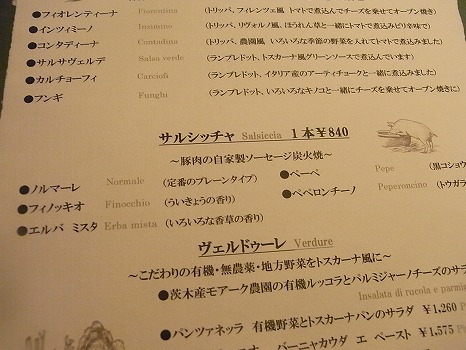 ●フィオレンティーナ Fiorentina (トリッパ、フィレンツェ風 トマトで煮込んでチーズを乗せてオーブン焼き)
●インツィミーノ Inzimino (トリッパ、リヴォルノ風、ほうれん草と一緒にトマトで煮込みピリ辛味で)
●コンタディーナ Contadina (トリッパ、農園風 いろいろな季節の野菜を入れてトマトで煮込みました)
●サルサヴェルデ Salsa verde (ランプレドット、トスカーナ風グリーンソースで煮込んでいます)
●カルチョーフィ Carciofi (ランプレドット、イタリア産のアーティチョークと一緒に煮込みました)
●フンギ Funghi (ランプレドット、いろいろなキノコと一緒にチーズを乗せてオーブン焼きに)
サルシッチャ Salsiccia 1本¥840
～豚肉の自家製ソーセージ炭火焼～
●ノルマーレ Normale (定番のプレーンタイプ) ●ペーペ Pepe (黒コショウ
●フィノッキオ Finocchio (ういきょうの香り) ●ペペロンチーノ Peperoncino (トウガラ
●エルバ ミスタ Erba mista (いろいろな香草の香り)
ヴェルドゥーレ Verdure
～こだわりの有機・無農薬・地方野菜をトスカーナ風に～
●茨木産モアーク農園の有機ルッコラとパルミジャーノチーズのサラ
Insalata di rucola e parmi
●パンツァネッラ 有機野菜とトスカーナパンのサラダ ¥1,260
バーニャカウダ エ ペースト ¥1,575